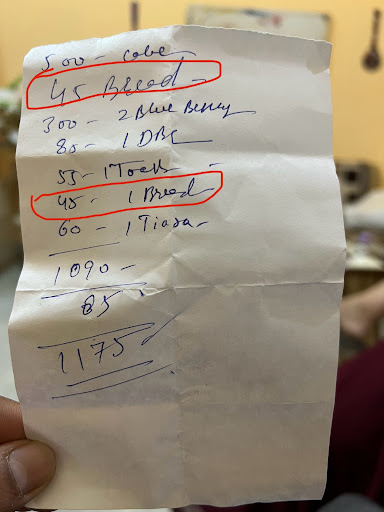 500 - cake
45 Bread -
300 - 2 Blue Berry
80 - 1 DBC
55 - 1
45 - 1 Bread
60 - 1 Tiara
1090 -
85
1175